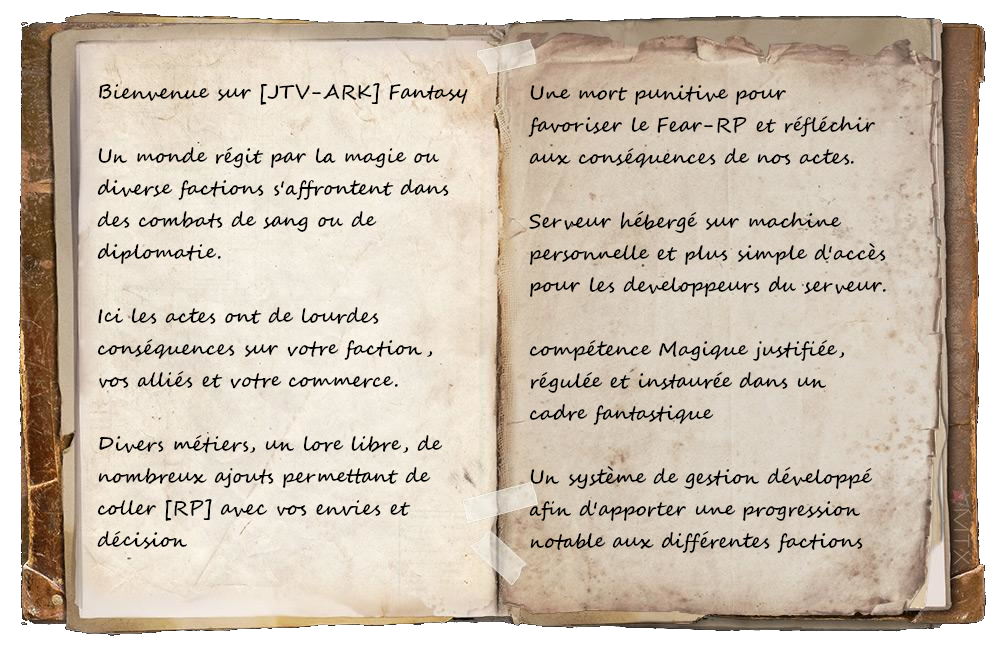 Bienvenue sur [JTV-ARK] Fantasy
Un monde régit par la magie ou
diverse factions s'affrontent dans
des combats de sang ou de
diplomatie.
Ici les actes ont de lourdes
conséquences sur votre faction,
vos alliés et votre commerce.
Divers métiers, un lore libre, de
nombreux ajouts permettant de
coller [RP] avec vos envies et
décision
Une mort punitive pour
favoriser le Fear-RP et réfléchir
aux conséquences de nos actes.
Serveur hébergé sur machine
personnelle et plus simple d'accès
pour les developpeurs du serveur.
compétence Magique justifiée,
régulée et instaurée dans un
cadre fantastique
Un système de gestion développé
afin d'apporter une progression
notable aux différentes factions